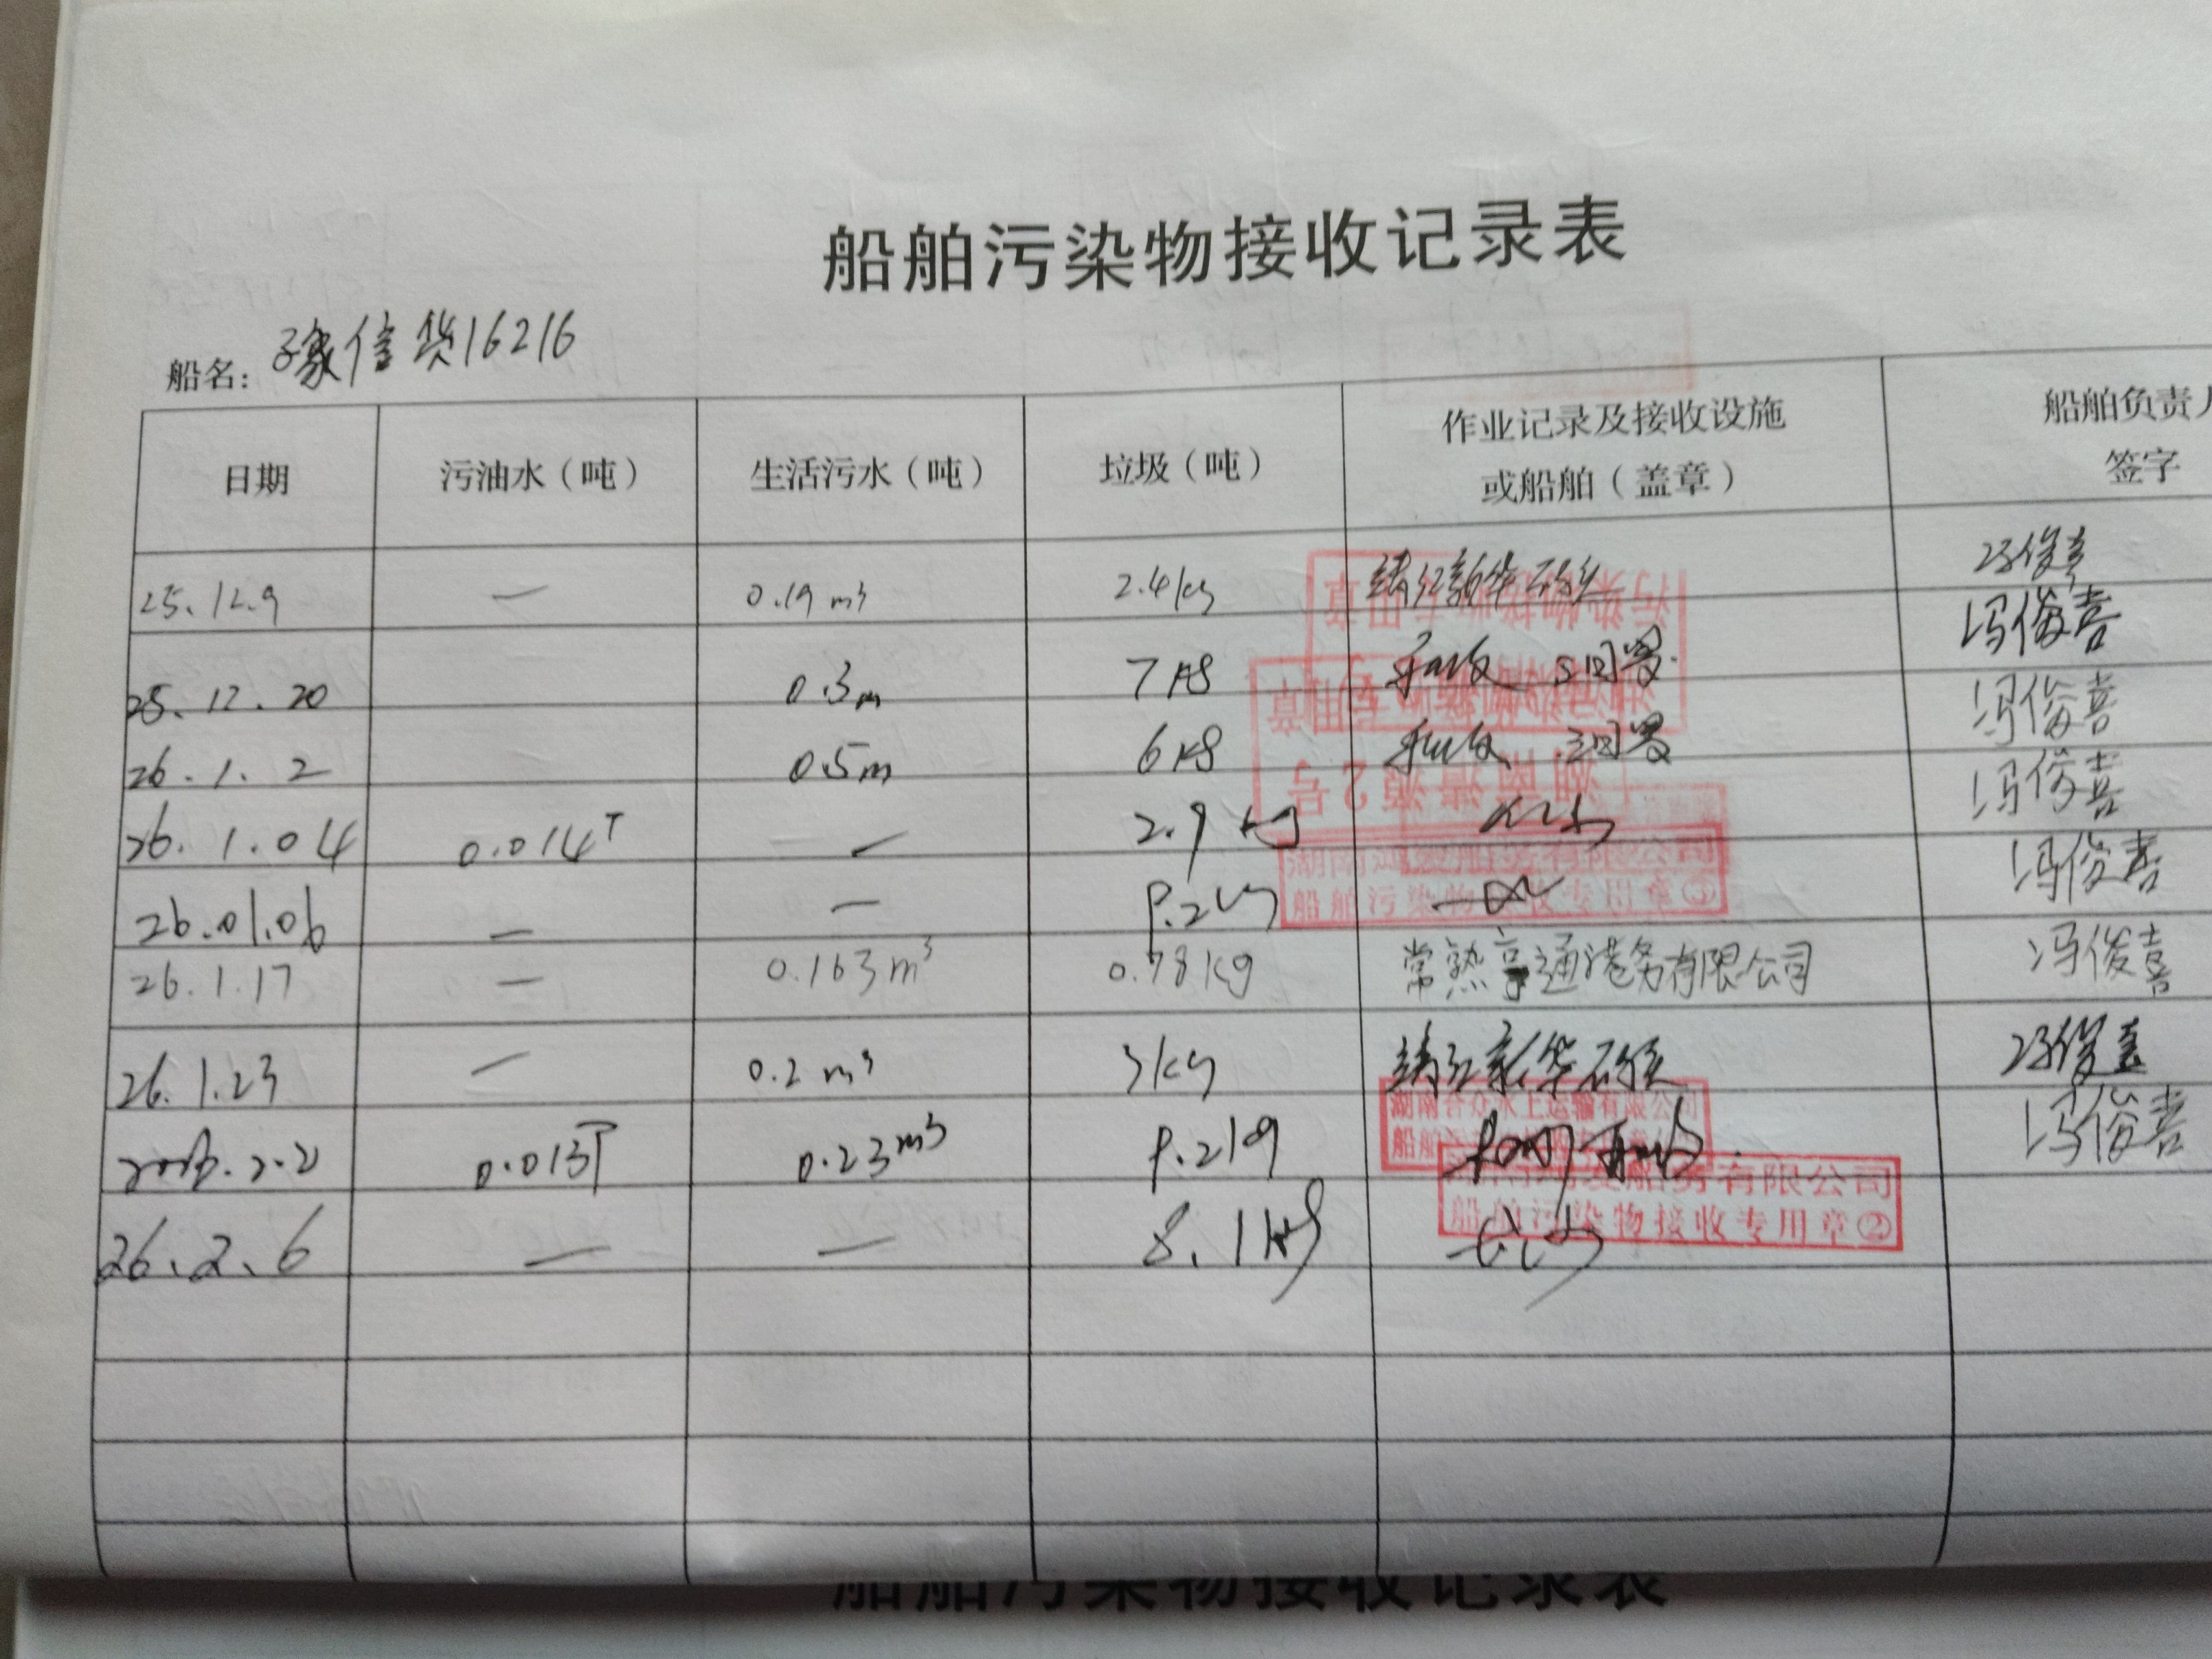 船舶污染物接收记录表
船名: 豫信货16216
日期 污油水（吨） 生活污水（吨） 垃圾（吨） 作业记录及接收设施 或船舶（盖章） 船舶负责人 签字
25.12.9 — 0.19 m³ 2.4kg 靖江新华 冯俊喜
25.12.20 0.3m 7KG 冯俊喜
26.1.2 0.5m 6KG 冯俊喜
26.1.04 0.014T — 2.9kg 冯俊喜
26.01.06 — — 冯俊喜
26.1.17 — 0.163m³ 0.78kg 常熟亨通港务有限公司 冯俊喜
26.1.23 — 0.2 m³ 3kg 靖江新华 冯俊喜
2026.2.2 0.013T 0.23m³ 冯俊喜
26.2.6 — — 8.1kg 长沙
污染物接收专用章
2号
船务有限公司
船舶污染物接收专用章①
水上运输有限公司
船务有限公司
船舶污染物接收专用章②
船舶污染物接收记录表